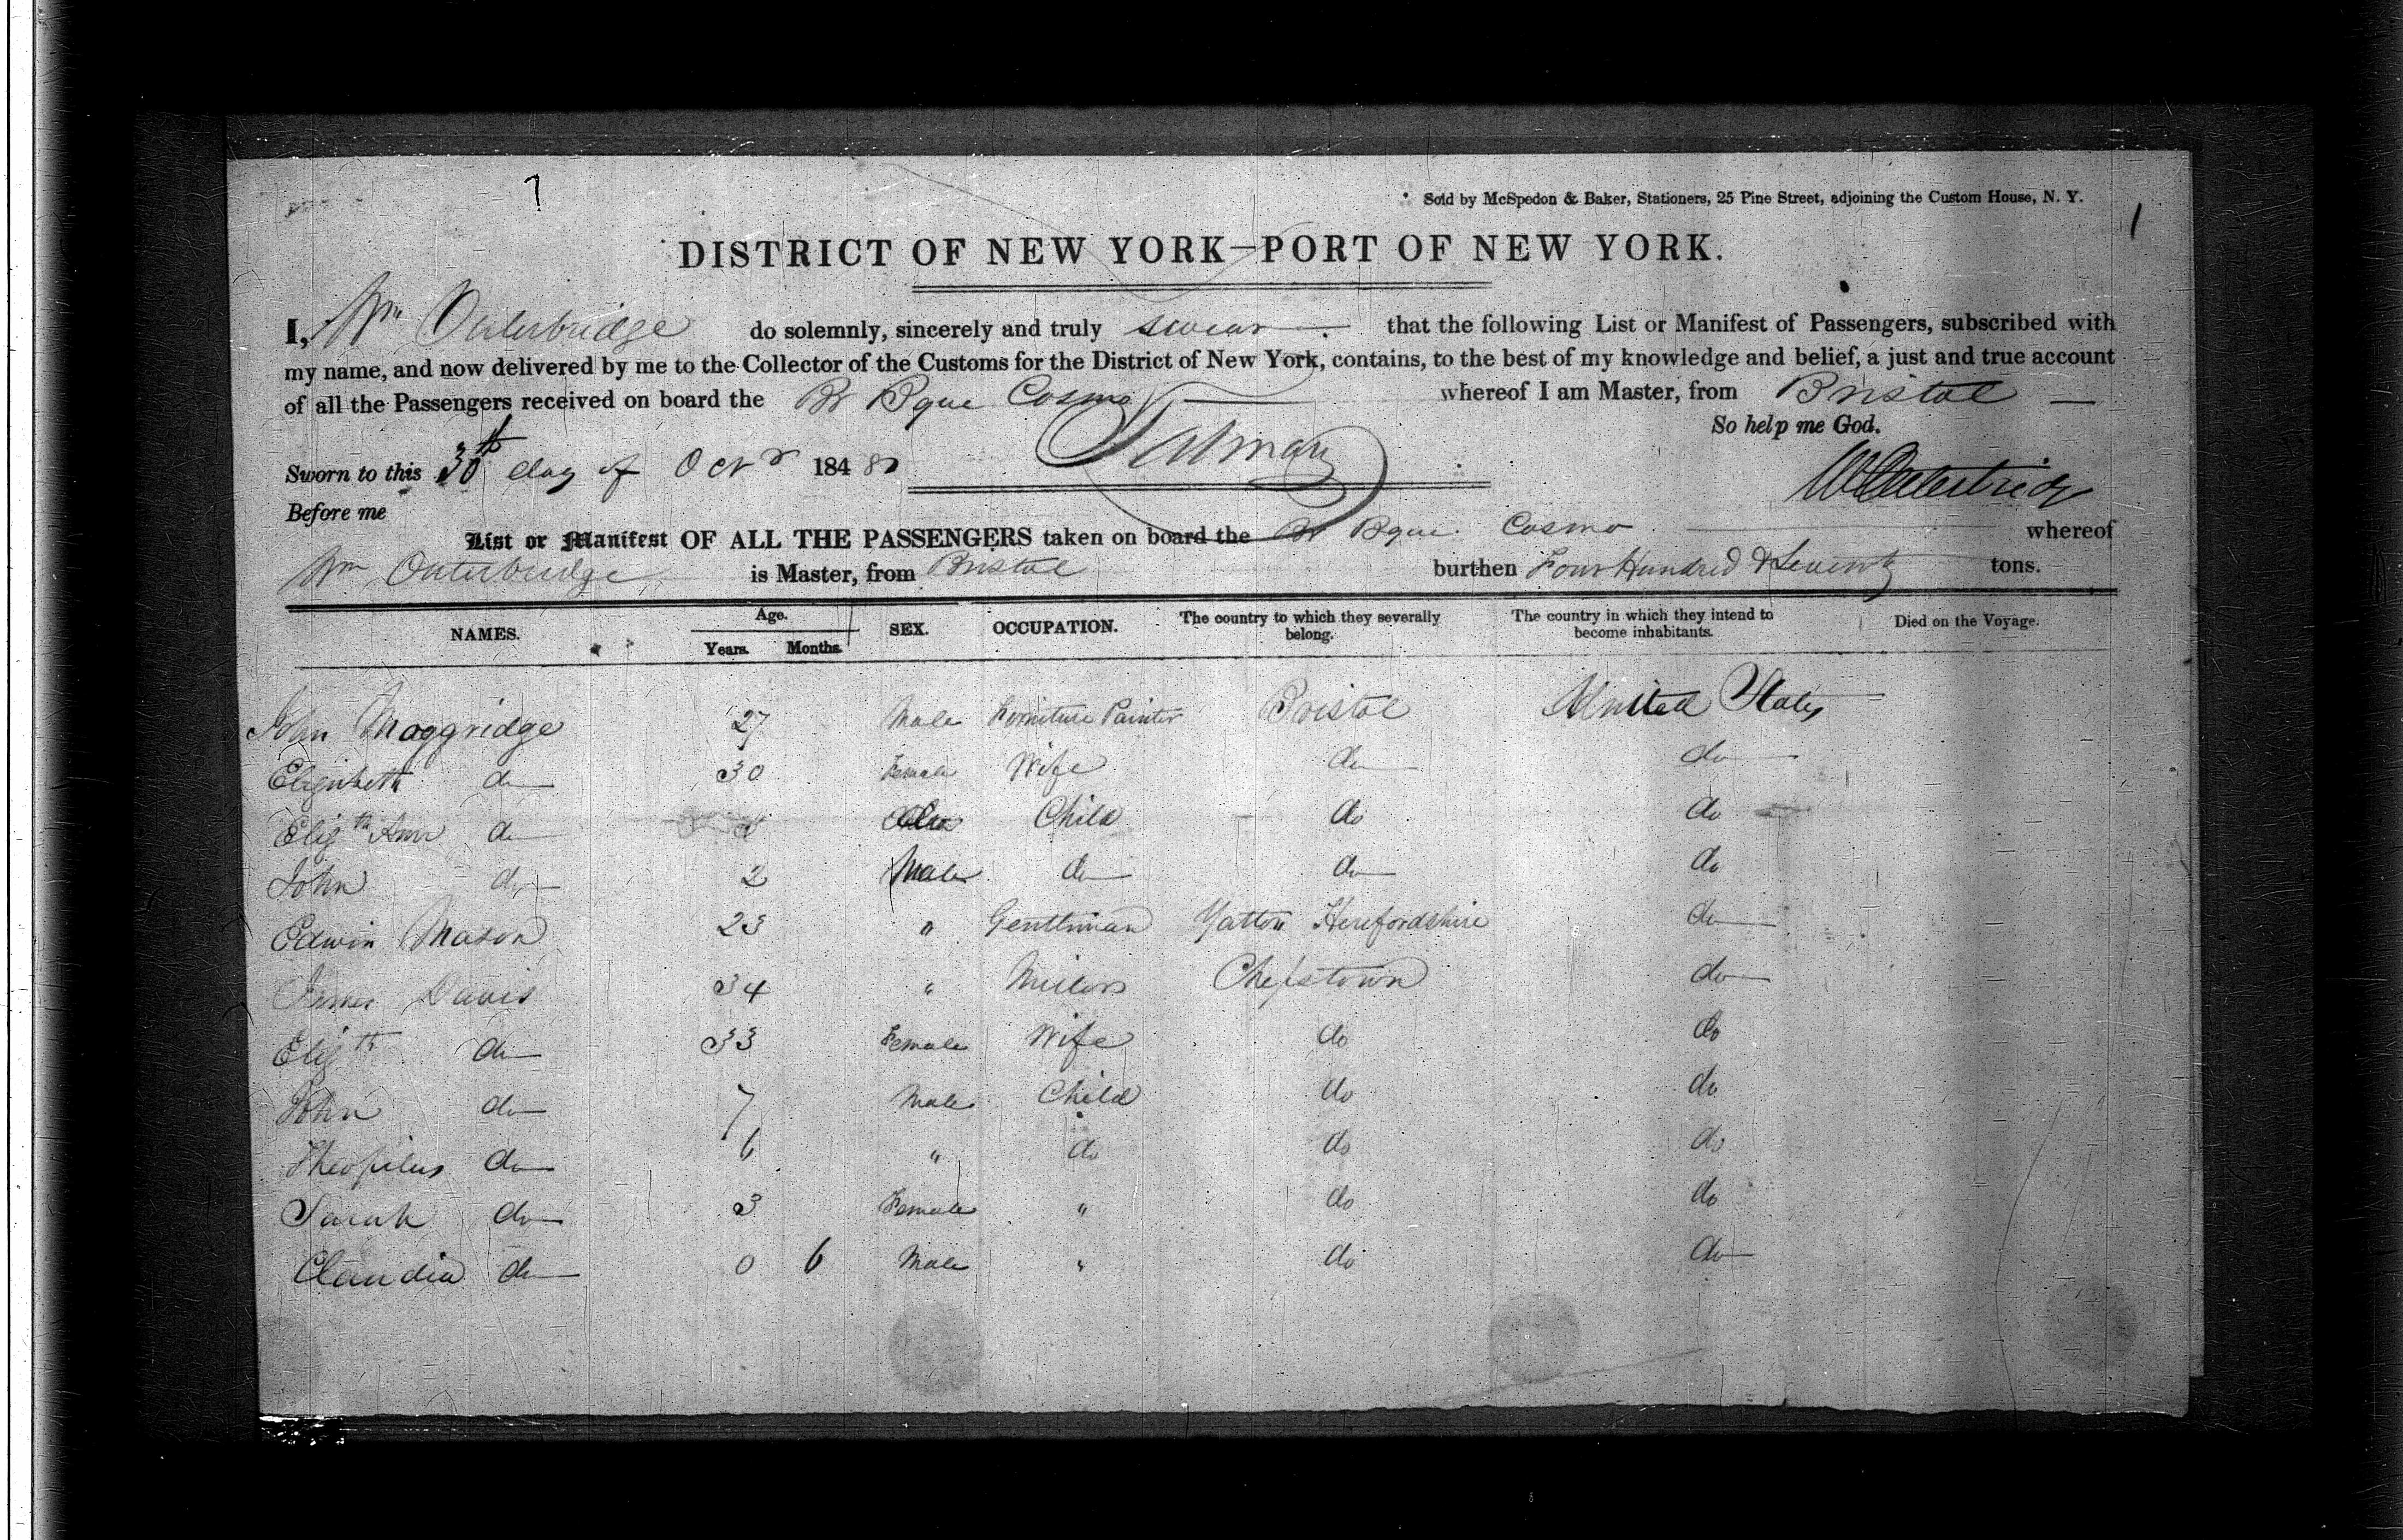 7
Sold by McSpedon & Baker, Stationers, 25 Pine Street, adjoining the Custom House, N. Y.
1
DISTRICT OF NEW YORK—PORT OF NEW YORK.
I, Wm Outerbridge do solemnly, sincerely and truly swear that the following List or Manifest of Passengers, subscribed with
my name, and now delivered by me to the Collector of the Customs for the District of New York, contains, to the best of my knowledge and belief, a just and true account
of all the Passengers received on board the Br Bque Cosmo whereof I am Master, from Bristol
So help me God.
Sworn to this 30th day of Octr 1848 WOuterbridge
Before me
List or Manifest OF ALL THE PASSENGERS taken on board the Br Bque Cosmo whereof
Wm Outerbridge is Master, from Bristol burthen Four Hundred & Seventy tons.
NAMES. Age. Years. Months. SEX. OCCUPATION. The country to which they severally belong. The country in which they intend to become inhabitants. Died on the Voyage.
John Moggridge 27 Male Furniture Painter Bristol United States
Elizabeth do 30 Female Wife do do
Elizth Ann do Child do do
John do 2 Male do do do
Edwin Mason 23 " Gentleman Yatton Herefordshire do
James Davis 34 " Chepstown do
Elizth do 33 Female Wife do do
John do 7 Male Child do do
Theopilus do 6 " do do do
Sarah do 3 Female " do do
Claudia do 0 6 Male " do do